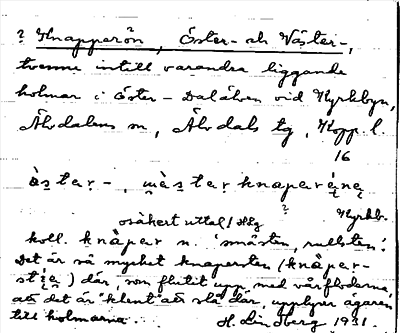 ? Knapperön, Öster- och Väster-,
tvenne intill varandra liggande
holmar i Öster-Dalälven vid Kyrkbyn,
Älvdalens sn, Älvdals tg, Kopp. l.
16
ǫ̀star-, wæ̀starknaparę́nę
?
Kyrkb.
osäkert uttal! HLg
koll. knàpar n. 'småsten, rullsten'.
Det är så mycket knapersten (knàpar-
) där, som flutit upp med vårfloderna,
att det är "klent" att slå där, upplyser ägaren
till holmarna. H. Lindberg 1931.